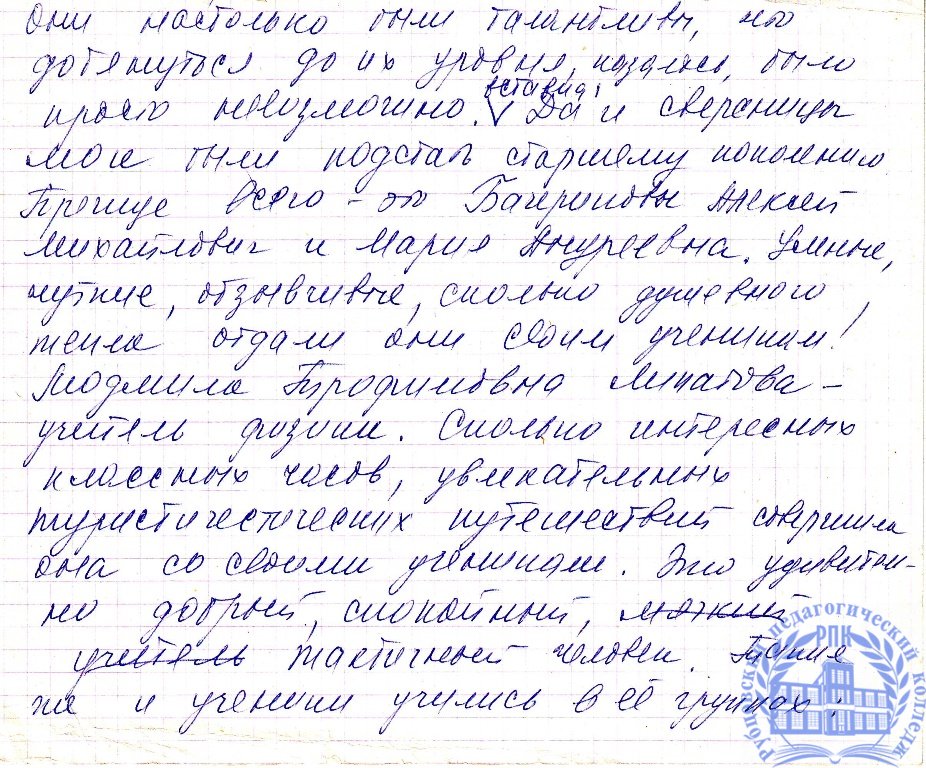 Они настолько были талантливы, что
дотянуться до их уровня, казалось, было
просто невозможно. Да и сверстницы
вставка!
мои были подстать старшему поколению.
Прежде всего - это Бачериковы Алексей
Михайлович и Мария Андреевна. Умные,
чуткие, отзывчивые, сколько душевного
тепла отдали они своим ученикам!
Людмила Трофимовна Липатова -
учитель физики. Сколько интересных
классных часов, увлекательных
туристичестических путешествий совершила
она со своими учениками. Это удивитель-
но добрый, спокойный, мягкий
учитель тактичный человек. Такие
же и ученики учились в её группах:
Рубцовский педагогический колледж
РПК